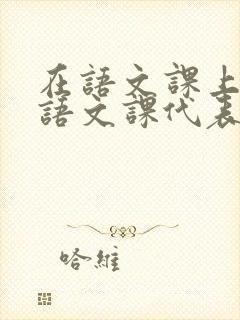 在語文課上
語文課代表
哈維